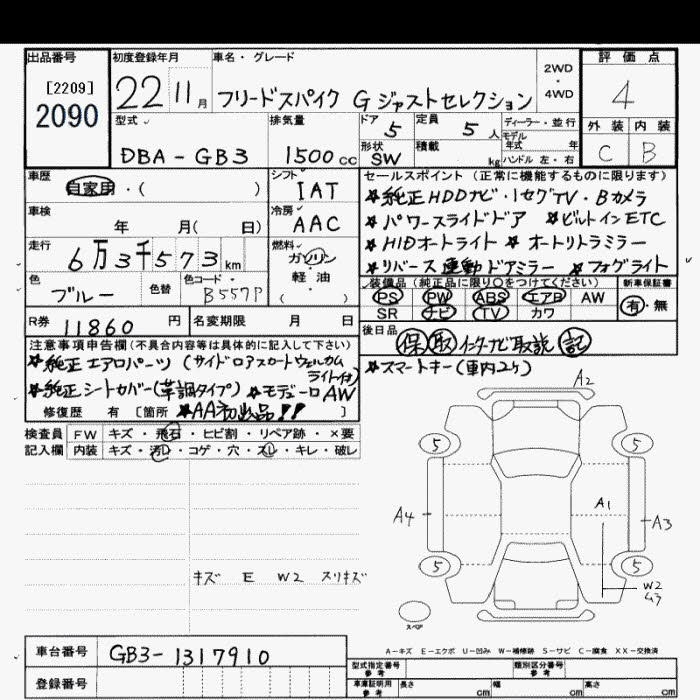 出品番号
[2209]
2090
初度登録年月
22 11月
車名・グレード
フリードスパイク Gジャストセレクション
2WD
・
4WD
評価点
4
外装 内装
C B
型式
DBA-GB3
排気量
1500cc
ドア 5
形状 SW
定員 5人
積載 kg
ディーラー・並行
モデル年式 年
ハンドル 左・右
車歴
自家用・( )
シフト
IAT
車検
年 月( 日)
冷房
AAC
走行
6万3千573km
燃料
ガソリン
軽・油
( )
色
ブルー
色替
色コード
B557P
R券 11860円
名変期限 月 日
セールスポイント(正常に機能するものに限ります)
★純正HDDナビ・1セグTV・Bカメラ
★パワースライドドア ★ビルトインETC
★HIDオートライト ★オートリトラミラー
★リバース連動ドアミラー ★フォグライト
装備品(純正品に限り〇をつけてください)
PS PW ABS エアB AW
SR ナビ TV カワ
新車保証書
有・無
後日品
保 取 インターナビ取説 記
★スマートキー(車内2ヶ)
注意事項申告欄(不具合内容等は具体的に記入して下さい)
★純正エアロパーツ(サイドロアスカートウェルカム
ライト付)
★純正シートカバー(革調タイプ) ★モデューロAW
修復歴 有 [箇所 ★AA初出品!! ]
検査員
記入欄
FW キズ・飛石・ヒビ割・リペア跡・×要
内装 キズ・汚レ・コゲ・穴・スレ・キレ・破レ
キズ E W2 スリキズ
A2
5 5
A4 A1 A3
5 5
W2
スペア
A-キズ E-エクボ U-凹み W-補修跡 S-サビ C-腐食 XX-交換済
車台番号 GB3-1317910
登録番号
型式指定番号
参考
類別区分番号
参考
車庫証明用
参考
長さ cm 幅 cm 高さ cm